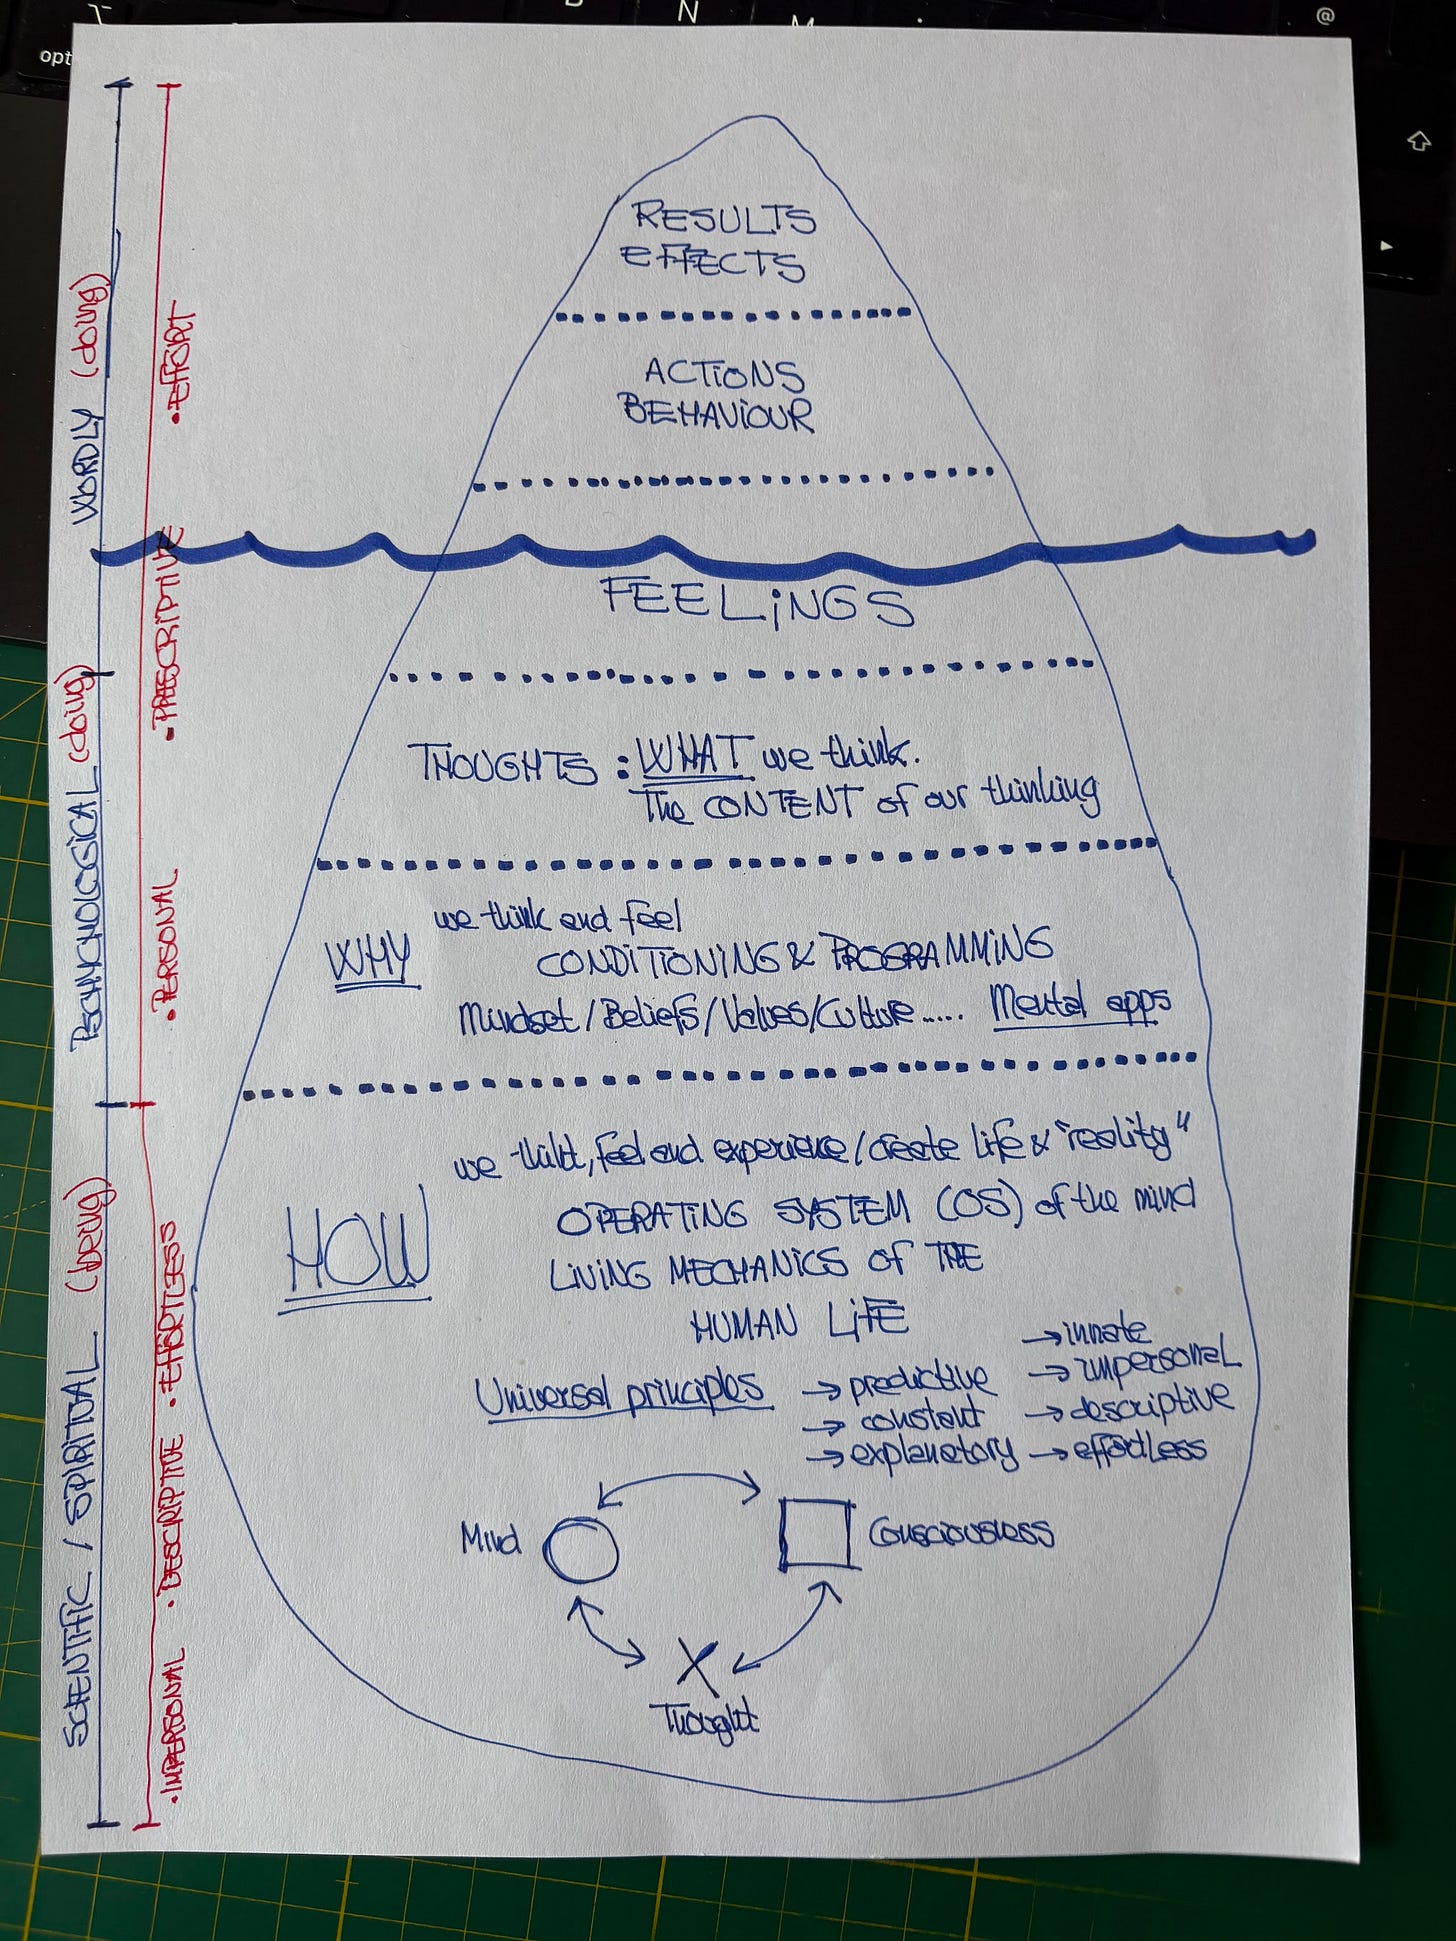 opt
N
@
RESULTS
EFFECTS
ACTiONS
BEHAViOUR
FEELiNGS
THOUGHTS : WHAT we think.
The CONTENT of our thinking
we think and feel
WHY
CONDiTiONiNG & PROGRAMMiNG
Mindset / Beliefs / Values / Culture ..... Mental apps
we think, feel and experience / create life & "reality"
HOW
OPERATiNG SYSTEM (OS) of the mind
LiViNG MECHANiCS Of THE
HUMAN LiFE
Universal principles
→ predictive
→ constant
→ explanatory
→ innate
→ impersonal
→ descriptive
→ effortless
Mind
Consciousness
X
Thought
WORDLY (doing)
PSCHYCHOLOGiCAL (doing)
SCiENTiFiC / SPiRiTUAL (being)
• EFFORT
• PRESCRiPTiVE
• PERSONAL
• EFFORTLESS
• DESCRiPTiVE
• iMPERSONAL